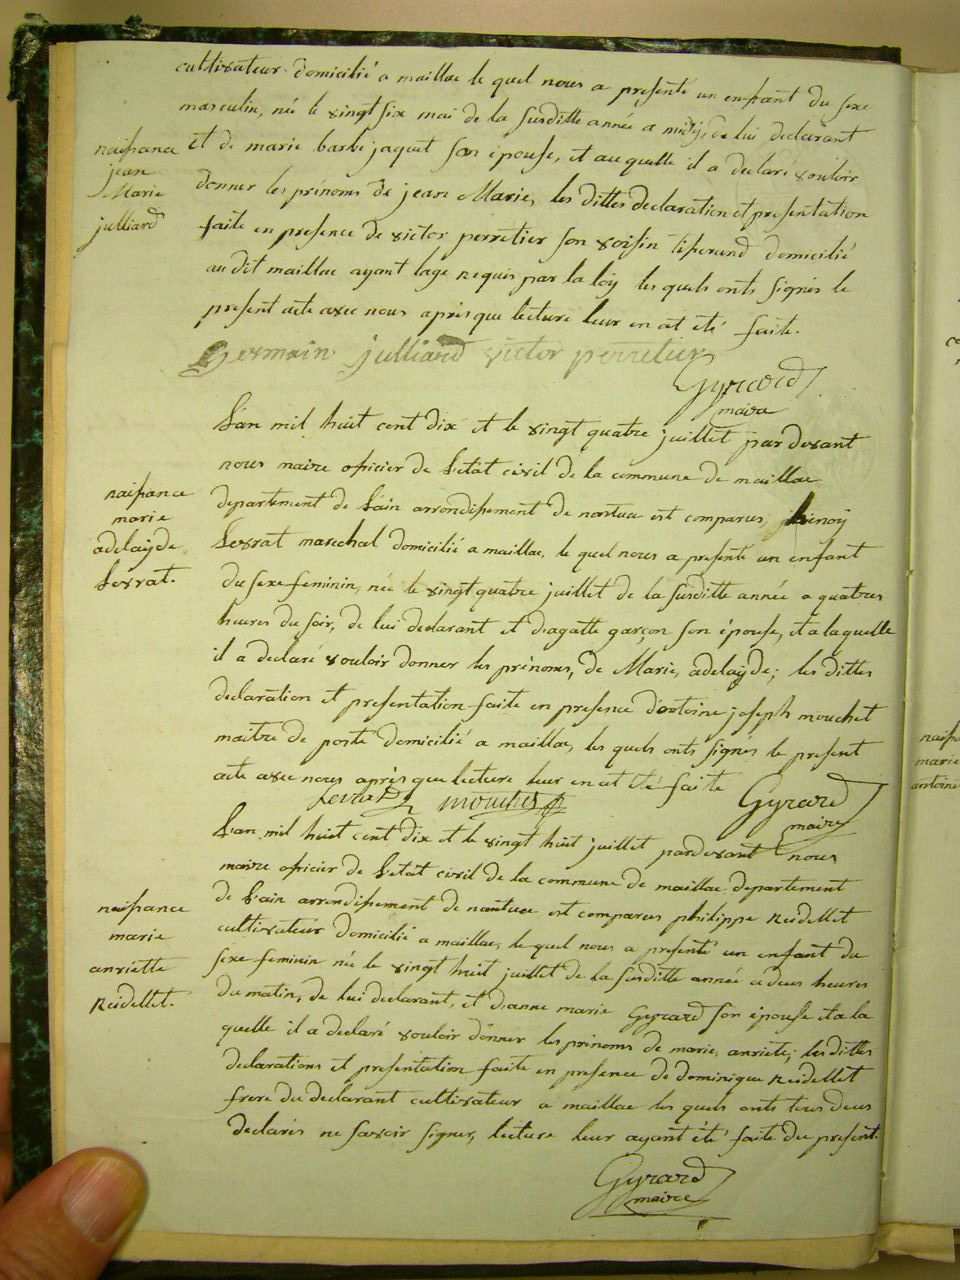 cultivateur domicilié a maillac le quel nous a presenté un enfant du sexe
masculin, née le vingt six mai de la susditte année a midy, de lui declarant
naissance
jean
Marie
julliard
et de marie barbe jaquet son épouse, et au quelle il a declaré vouloir
donner les prénoms de jean Marie, les dittes declaration et presentation
faite en presence de victor perretier son voisin domicilié
au dit maillac ayant lage requis par la loy les quels onts signés le
present acte avec nous après que lecture leur en at été faite.
Germain julliard victor perretier
Gyrard
maire
L'an mil huit cent dix et le vingt quatre juillet par devant
nous maire oficier de L'etat civil de la commune de maillac
naissance
marie
adelayde
Levrat.
departement de L'ain arrondissement de nantua est comparus
Levrat marechal domicilié a maillac, le quel nous a presenté un enfant
du sexe feminin, née le vingt quatre juillet de la susditte année a quatres
heures du soir, de lui declarant et d'agatte garçon son épouse, et a laquelle
il a declaré vouloir donner les prénoms, de Marie, adelayde; les dittes
declaration et presentation faite en presence dantoine joseph mouchet
maitre de poste domicilié a maillac, les quels onts signés le present
acte avec nous après que lecture leur en at été faite
Levrat mouchet
Gyrard
maire
L'an mil huit cent dix et le vingt huit juillet pardevant nous
maire oficier de L'etat civil de la commune de maillac departement
naissance
marie
anriette
Reidellet.
de L'ain arrondissement de nantua est comparus philippe Reidellet
cultivateur domicilié a maillac, le quel nous a presenté un enfant du
sexe feminin née le vingt huit juillet de la susditte année a deux heures
du matin, de lui declarant, et d'anne marie Gyrard son épouse et a la
quelle il a declaré vouloir donner les prénoms de marie, anriete; les dittes
declarations et presentation faite en presence de dominique Reidellet
frere du declarant cultivateur a maillac les quels onts tous deux
declarés ne savoir signer, lecture leur ayant été faite du present.
Gyrard
maire
marie
antoine